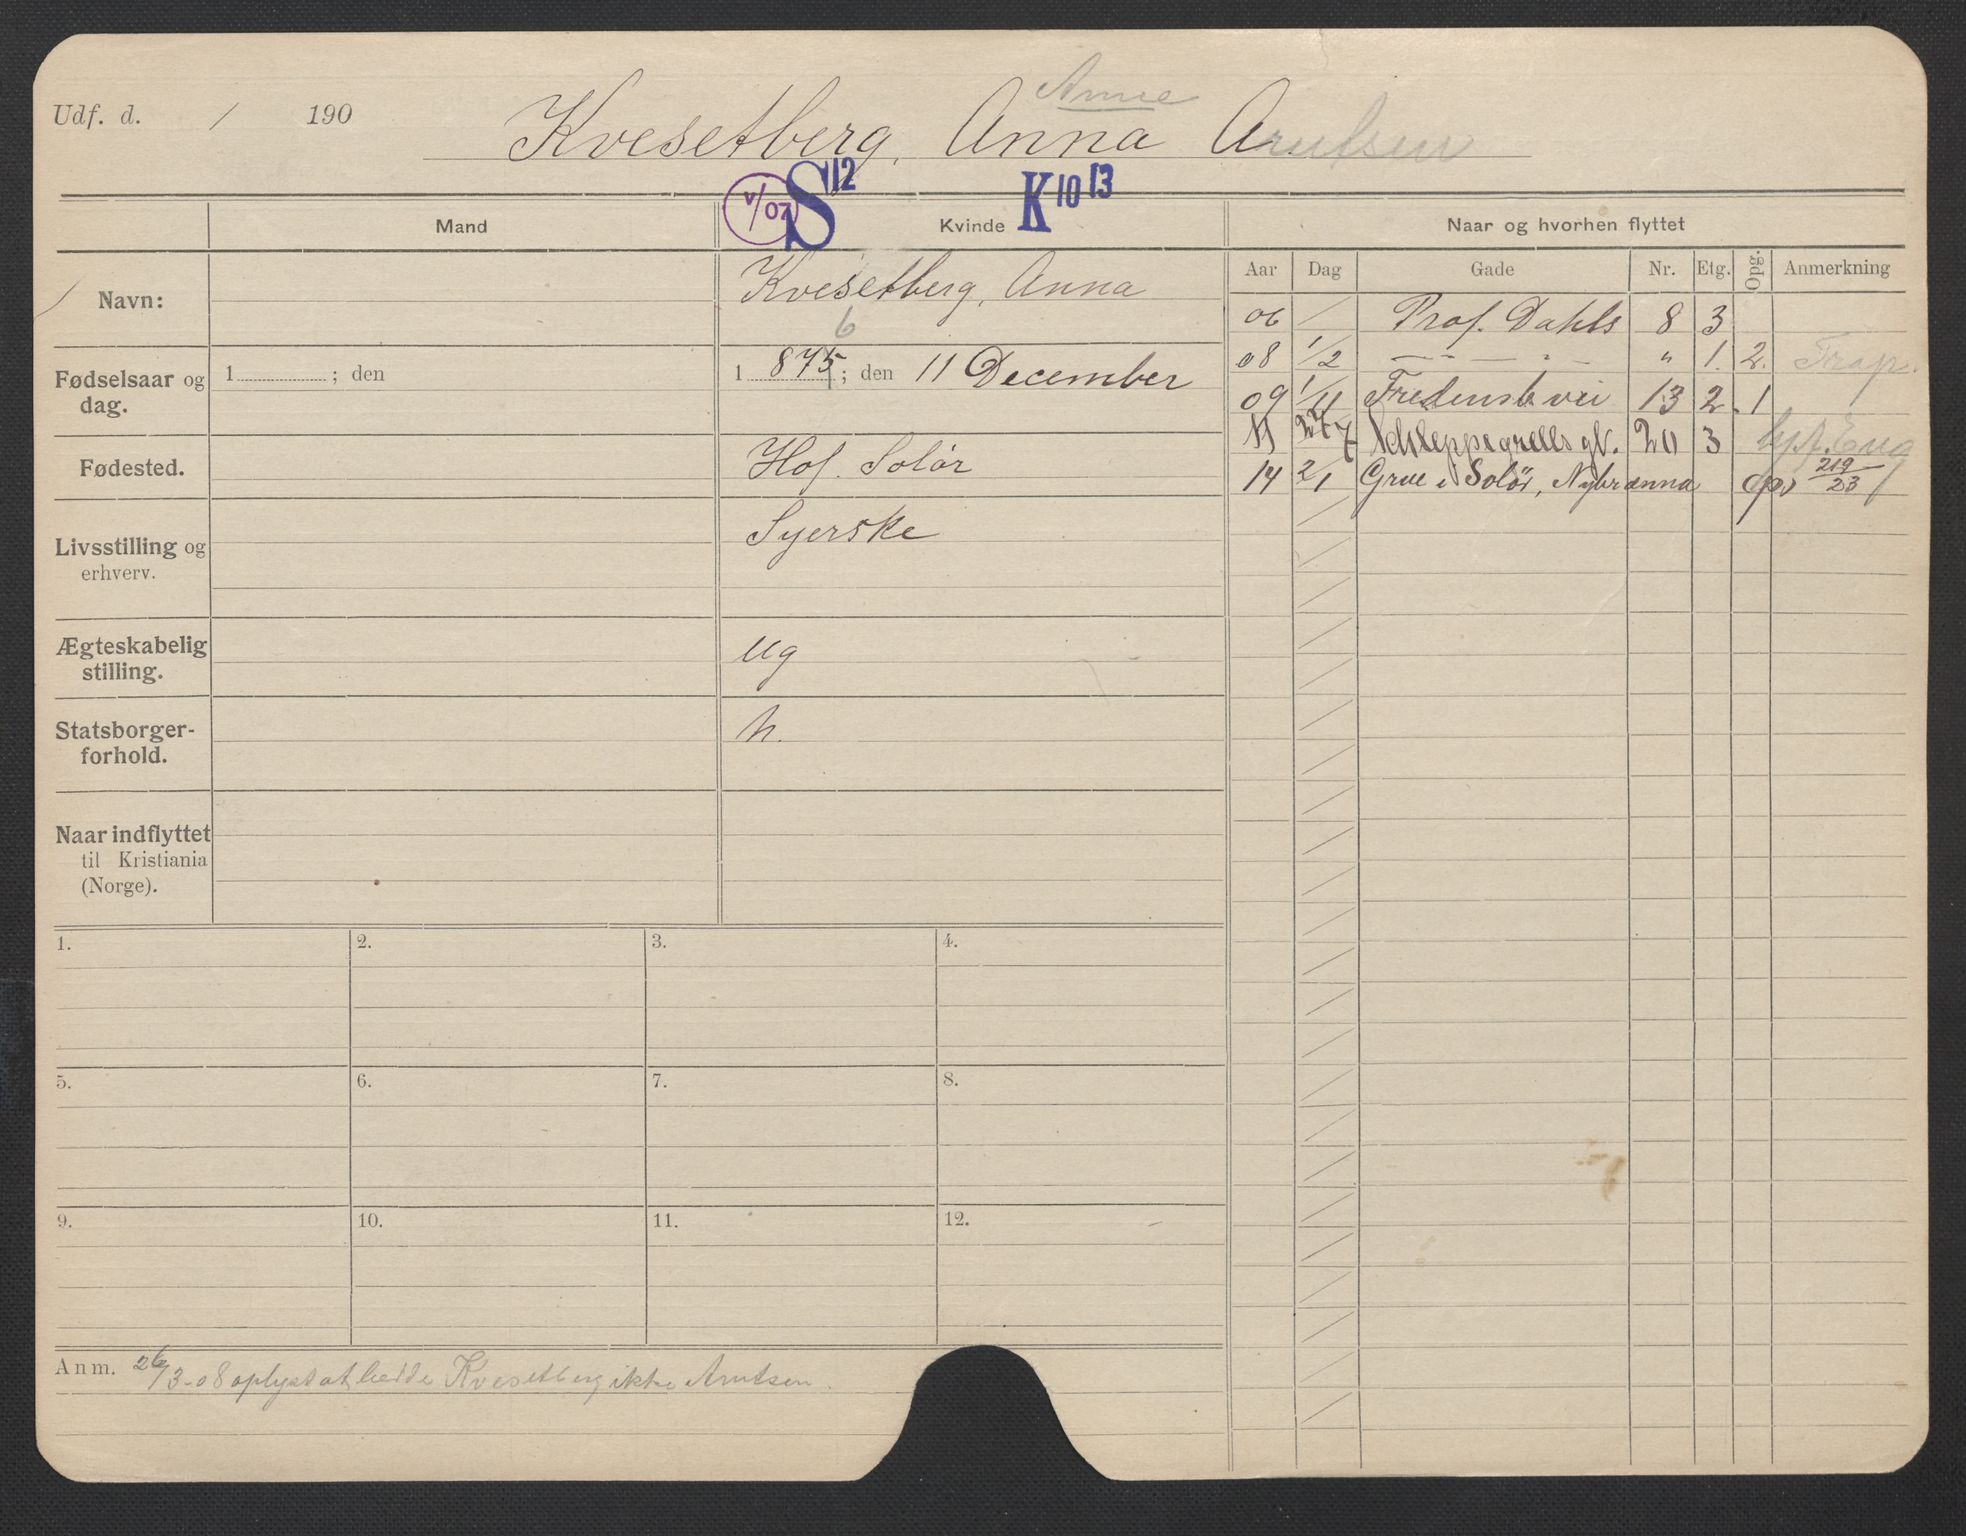 Udf. d. / 190
Anne
Kvesetberg, Anna Arntsen
V/07 S 12 K 10 13
Mand Kvinde Naar og hvorhen flyttet
Aar Dag Gade Nr. Etg. Opg. Anmerkning
Navn: Kvesetberg, Anna
06 / Prof. Dahls 8 3
6
08 1/2 — " — " — " 1. 2. Trap.
Fødselsaar og dag. 1 ; den 1 875; den 11 December
09 1/11 Fredensb.vei 13 2. 1
11 27/7 Schleppegrells gt. 20 3
Fødested. Hof. Solør
14 2/1 Grue i Solør, Nybrænna op. 219/23
Livsstilling og erhverv. Syerske
Ægteskabelig stilling. ug
Statsborger-forhold. n.
Naar indflyttet til Kristiania (Norge).
1. 2. 3. 4.
5. 6. 7. 8.
9. 10. 11. 12.
Anm. 26/3-08 oplyst at hedde Kvesetberg ikke Arntsen.